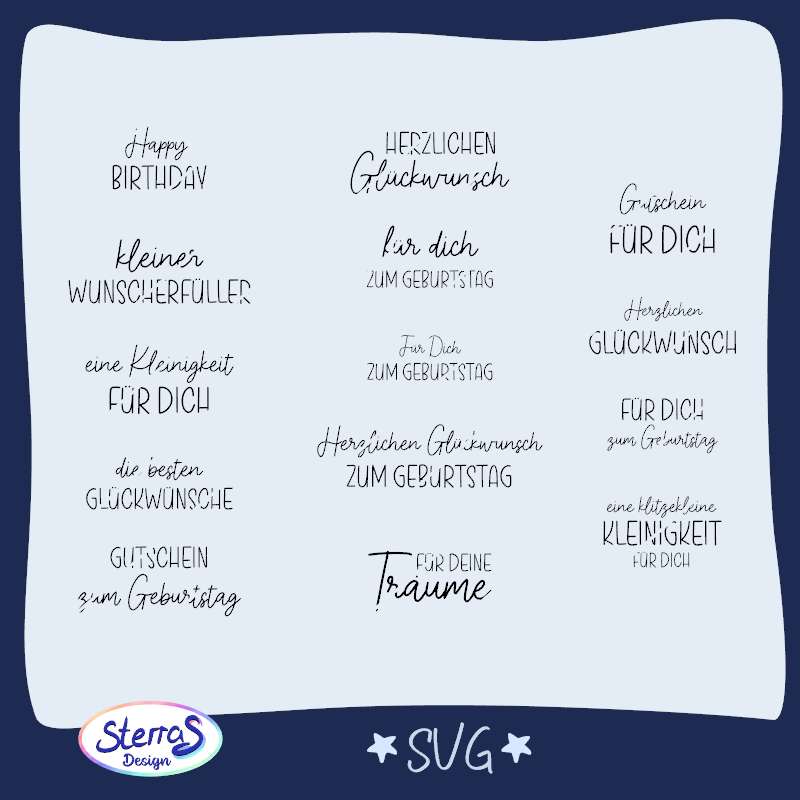 Happy
BIRTHDAY
kleiner
WUNSCHERFÜLLER
eine Kleinigkeit
FÜR DICH
die besten
GLÜCKWÜNSCHE
GUTSCHEIN
zum Geburtstag
HERZLICHEN
Glückwunsch
für dich
ZUM GEBURTSTAG
Für Dich
ZUM GEBURTSTAG
Herzlichen Glückwunsch
ZUM GEBURTSTAG
FÜR DEINE
Träume
Gutschein
FÜR DICH
Herzlichen
GLÜCKWUNSCH
FÜR DICH
zum Geburtstag
eine klitzekleine
KLEINIGKEIT
FÜR DICH
SterraS
Design
SVG